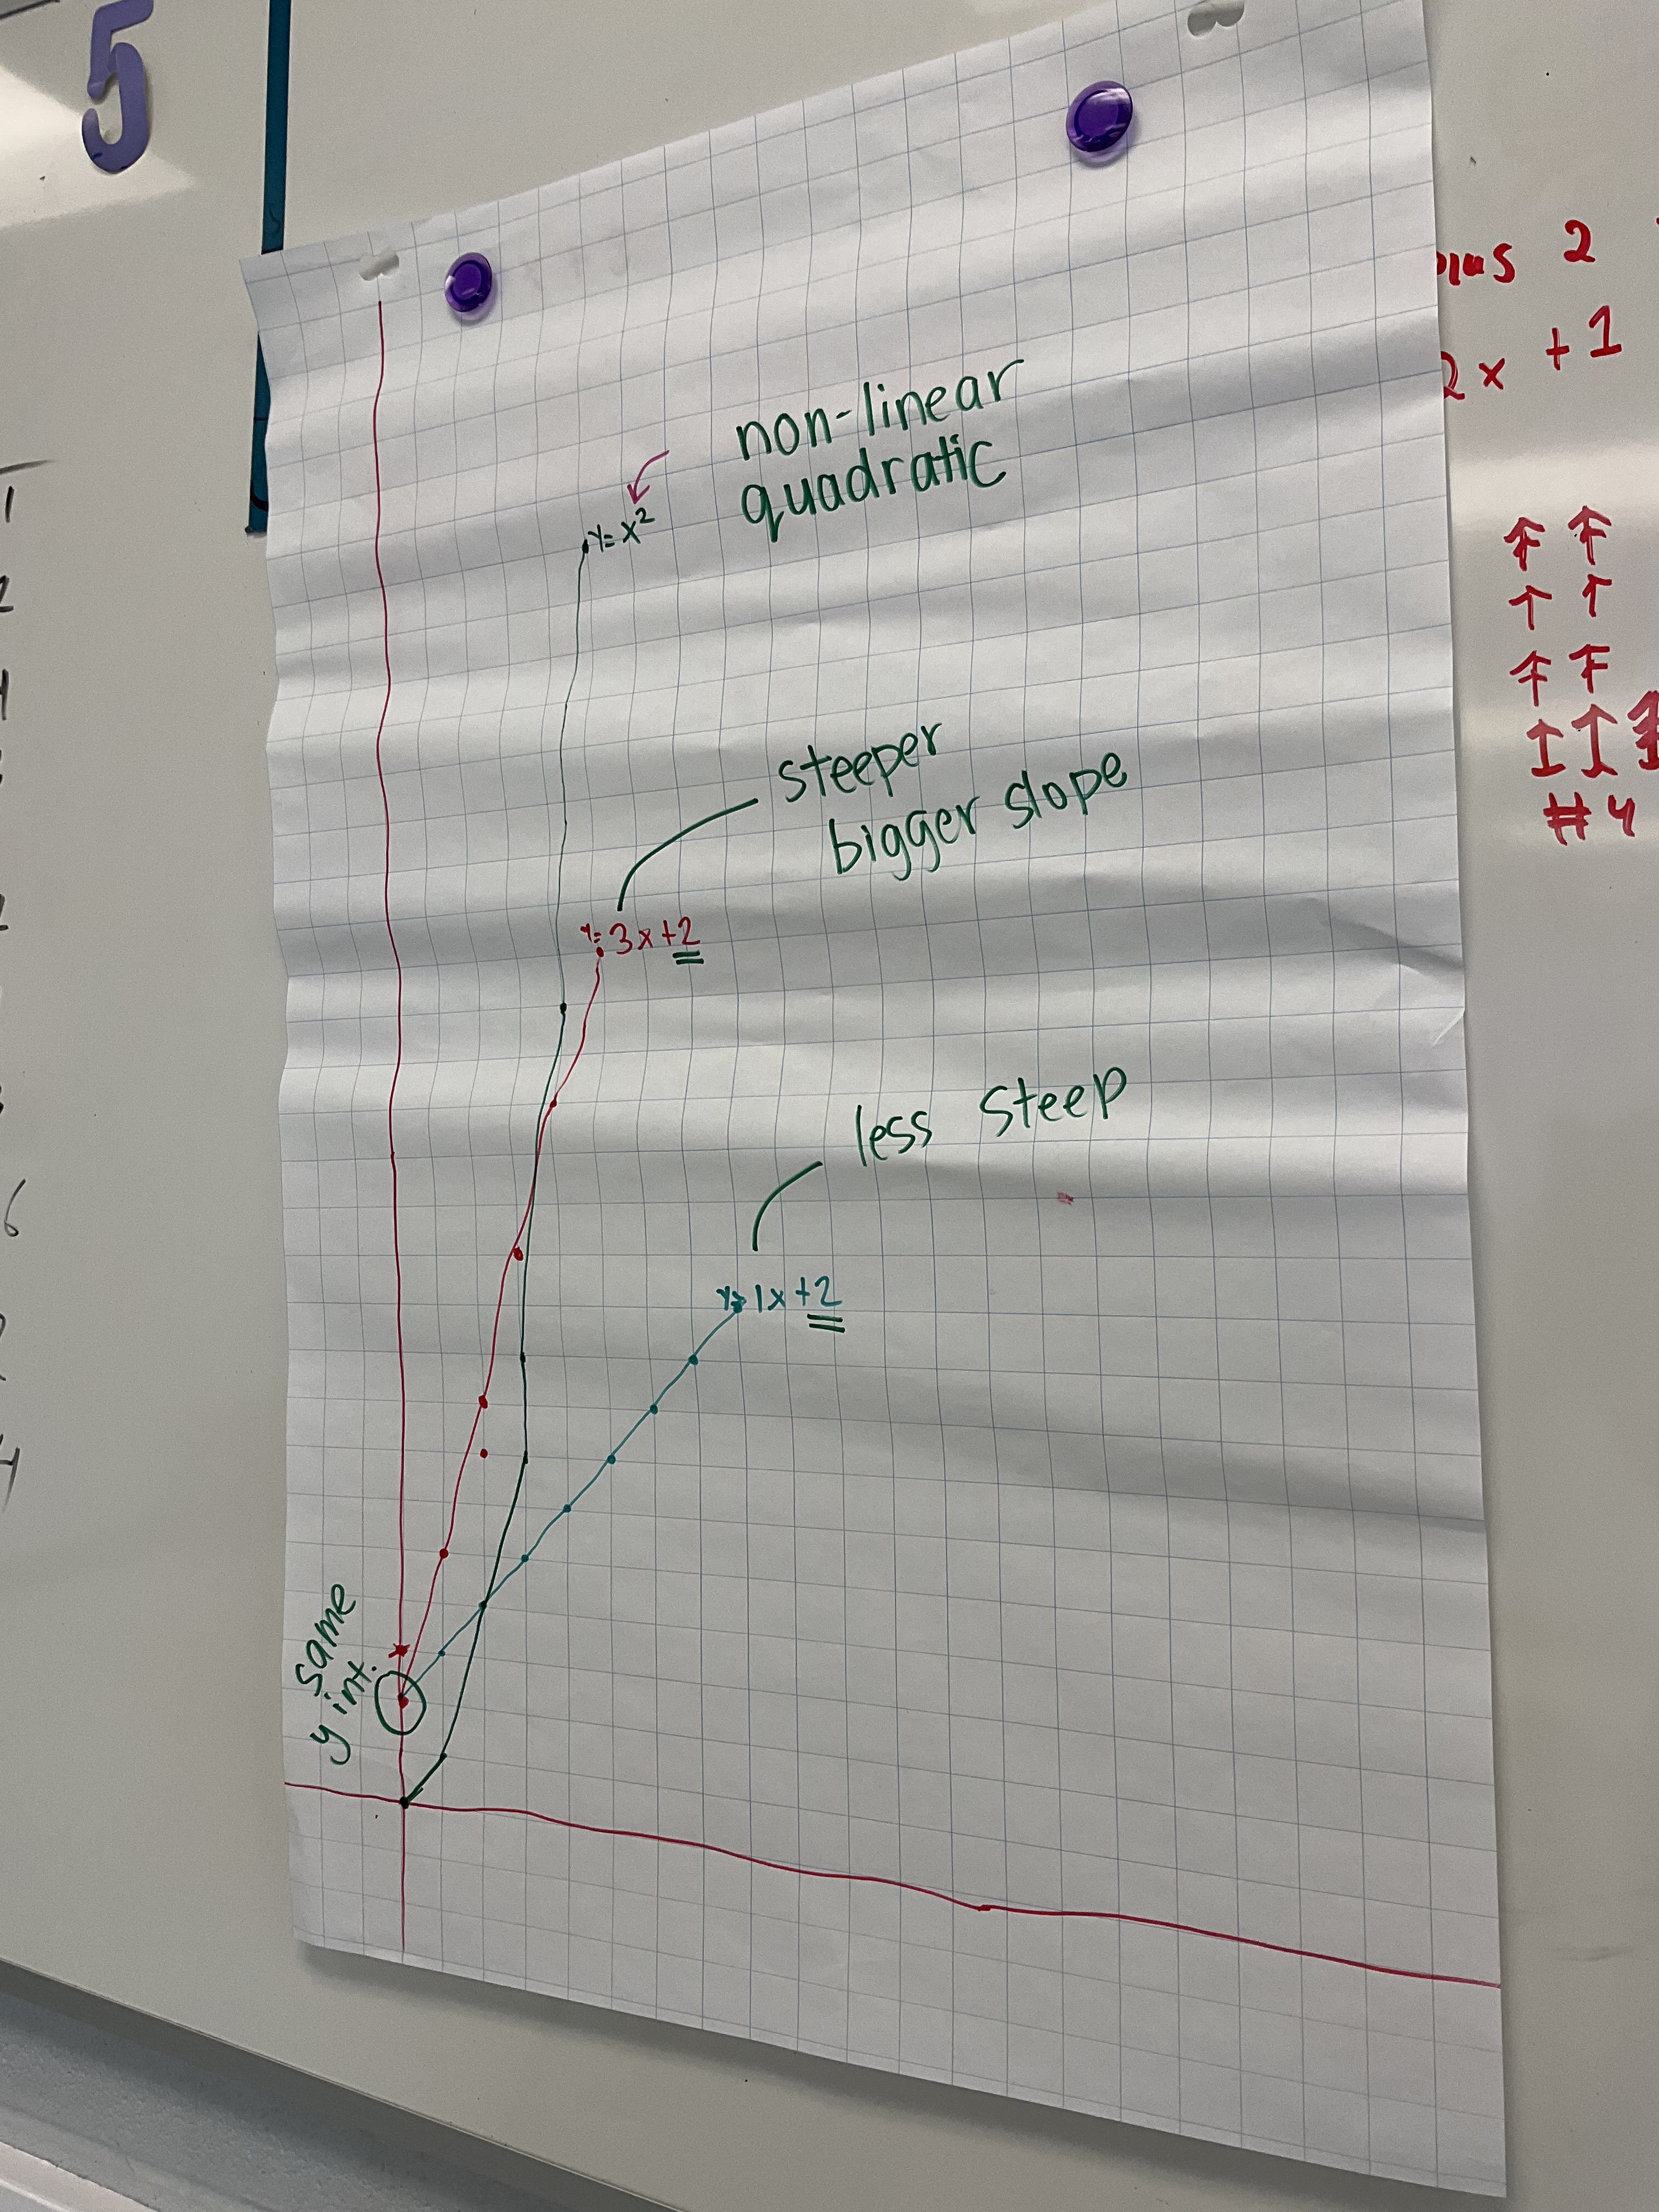 5
plus 2
2x +1
non-linear
quadratic
y=x²
steeper
bigger slope
y=3x+2
#4
less steep
y=1x+2
same
y int.